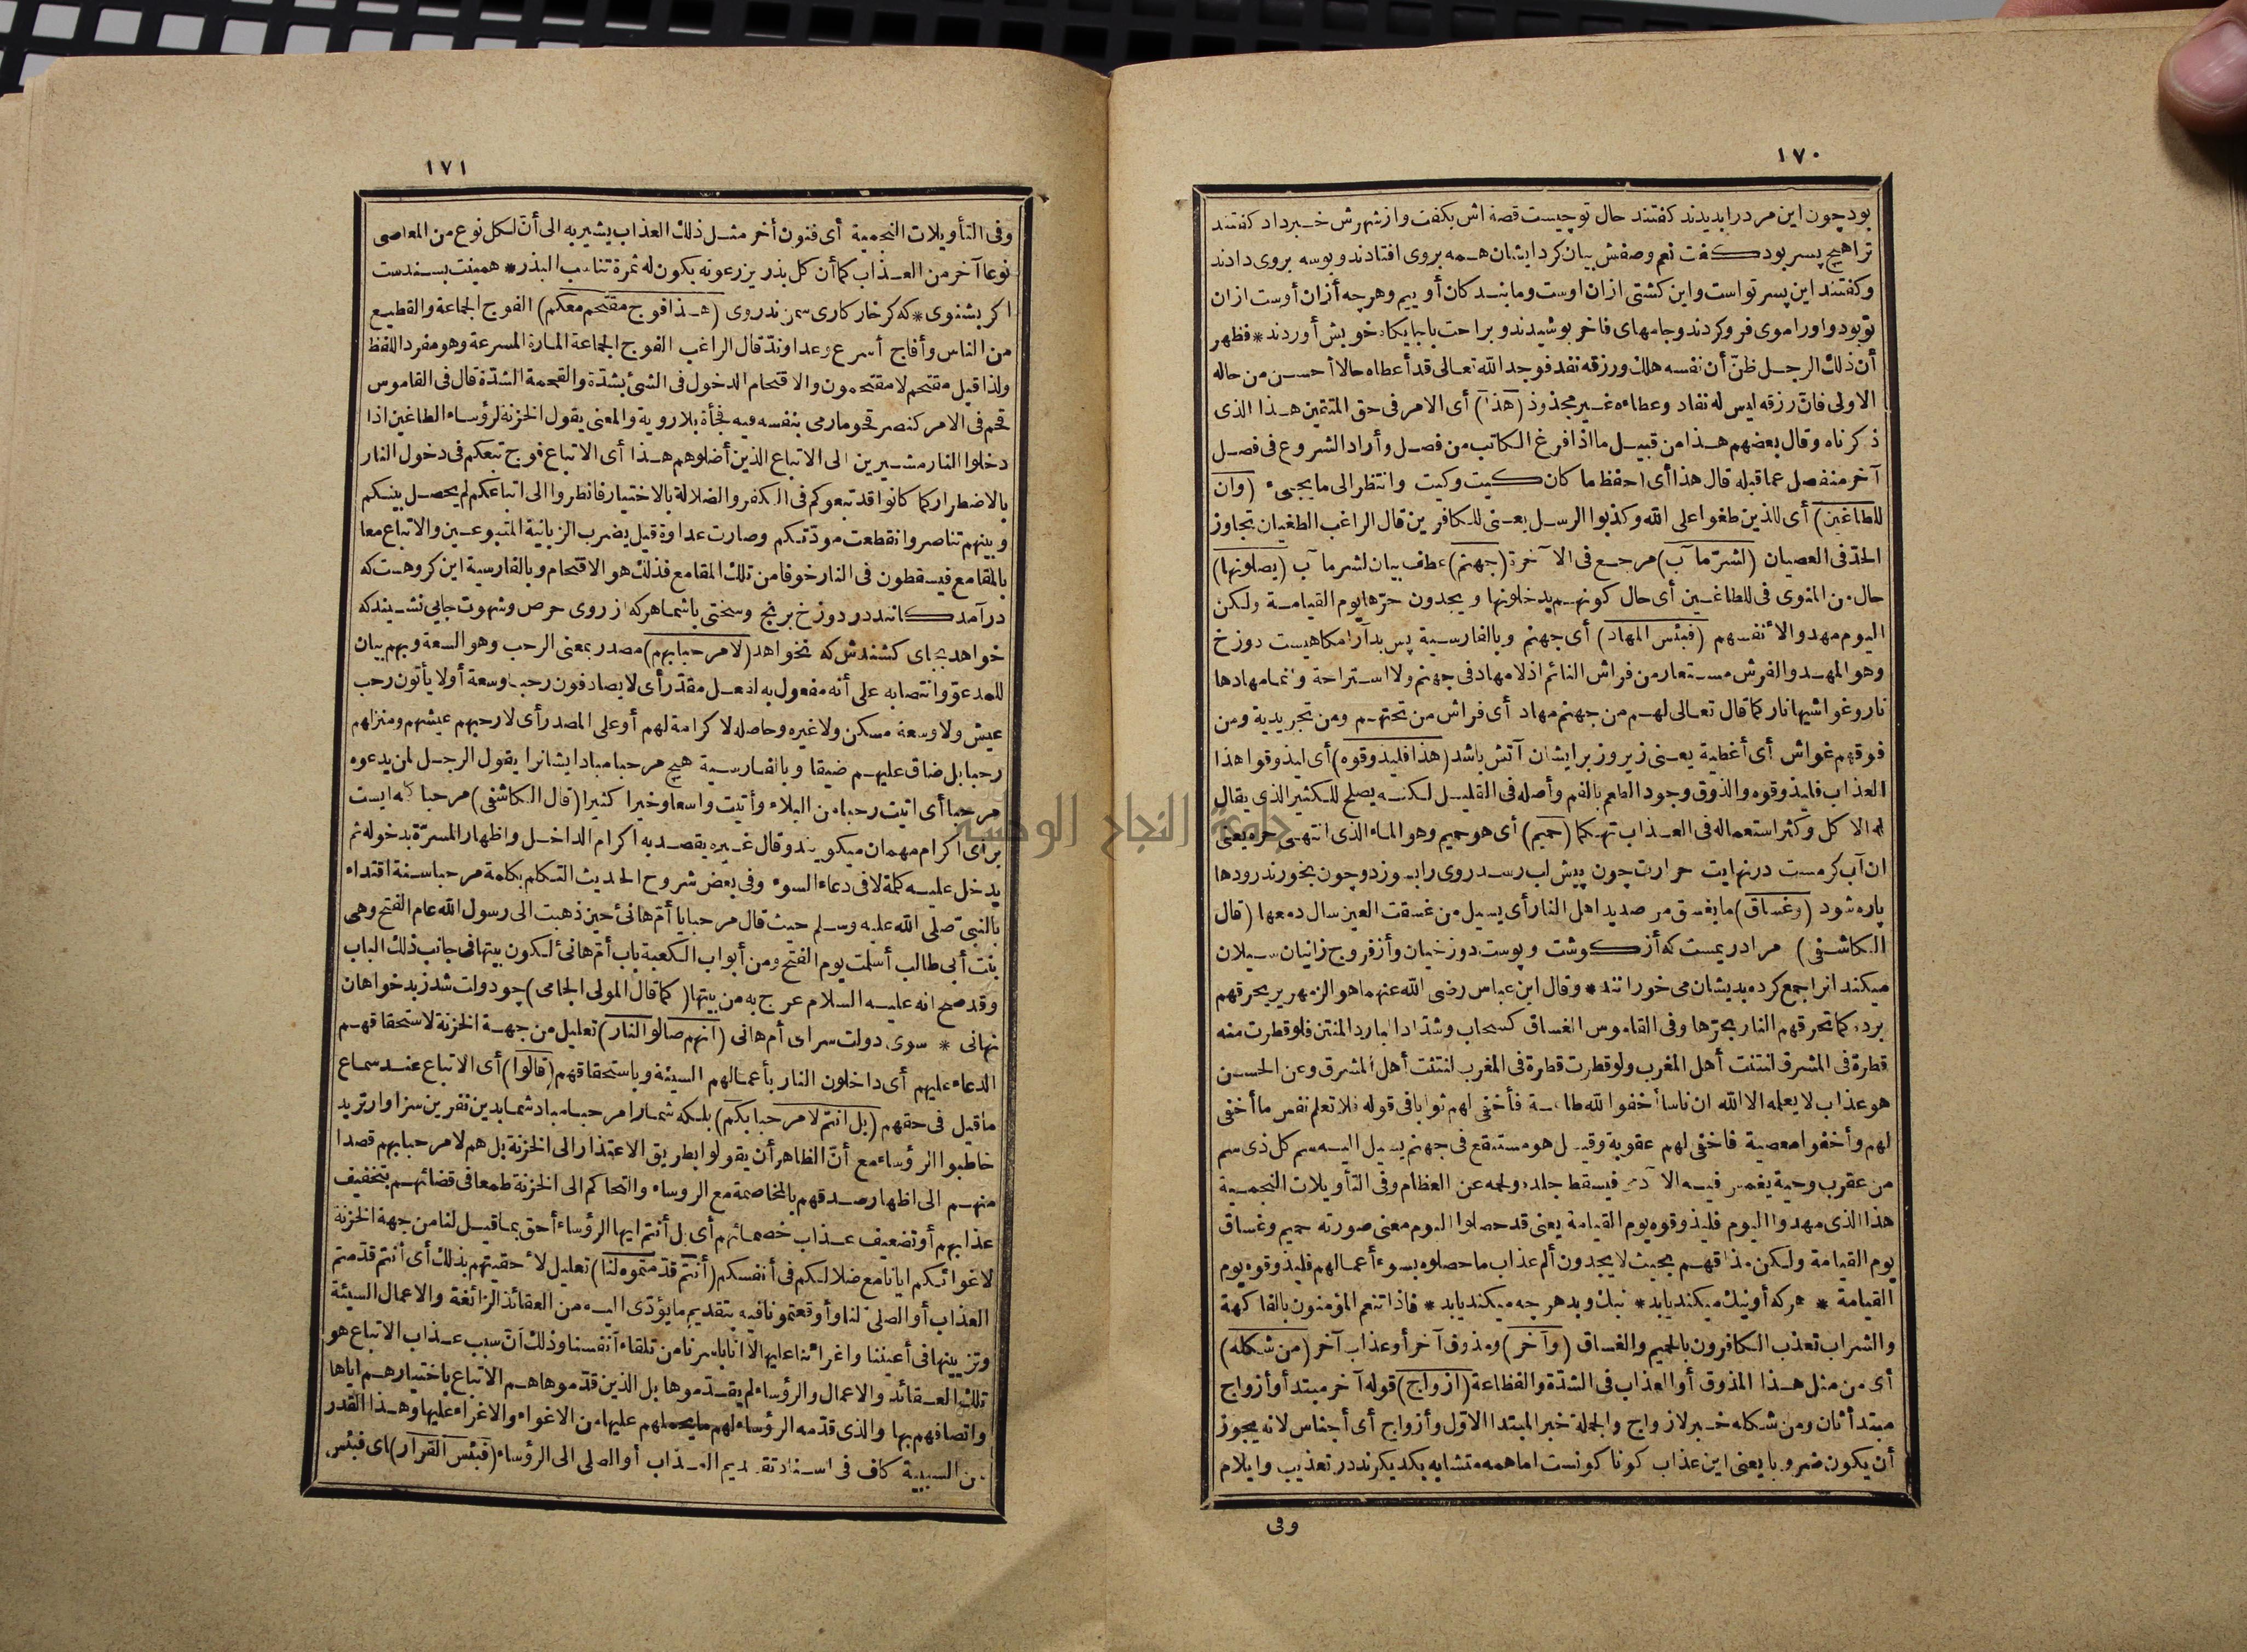 ١٧٠
بود چون اين مرد را بديدند كفتند حال تو چيست قصه اش بكفت واز شهرش خبر داد كفتند
ترا هيچ پسر بود كفت نعم وصفش بيان كرد ايشان همه بروى افتادند وبوسه بروى دادند
وكفتند اين پسر تو است واين كشتى ازان اوست وما بندكان أوييم وهر چه أزان أوست ازان
تو بود واورا موى فرو كردند وجامهاى فاخر پوشيدند وبراحت با جايكاه خويش أوردند * فظهر
أن ذلك الرجل ظنّ أن نفسه هلك ورزقه نفد فوجد الله تعالى قد أعطاه حالا أحسن من حاله
الاولى فانّ رزقه ليس له نفاد وعطاءه غير مجذوذ (هذا) أى الامر فى حق المتقين هذا الذى
ذكرناه وقال بعضهم هذا من قبيل ما اذا فرغ الكاتب من فصل وأراد الشروع فى فصل
آخر منفصل عما قبله قال هذا أى احفظ ما كان كيت وكيت وانتظر الى ما يجىء (وان
للطاغين) أى للذين طغوا على الله وكذبوا الرسل يعنى للكافرين قال الراغب الطغيان تجاوز
الحدّ فى العصيان (لشرّ مآب) مرجع فى الآخرة (جهنم) عطف بيان لشر مآب (يصلونها)
حال من المنوى فى للطاغين أى حال كونهم يدخلونها ويجدون حرّها يوم القيامة ولكن
اليوم مهدوا لأنفسهم (فبئس المهاد) أى جهنم وبالفارسية پس بد آرامكاهيست دوزخ
وهو المهد والفرش مستعار من فراش النائم اذ لا مهاد فى جهنم ولا استراحة وانما مهادها
نار وغواشيها نار كما قال تعالى لهم من جهنم مهاد أى فراش من تحتهم ومن تجريدية ومن
فوقهم غواش أى أغطية يعنى زير وزبر ايشان آتش باشد (هذا فليذوقوه) أى ليذوقوا هذا
العذاب فليذوقوه والذوق وجود الطعم بالفم وأصله فى القليل لكنه يصلح للكثير الذى يقال
له الاكل وكثر استعماله فى العذاب تهكما (حميم) أى هو حميم وهو الماء الذى انتهى حره يعنى
ان آب كرمست در نهايت حرارت چون پيش لب رسد روى را بسوزد وچون بخورند رودها
پاره شود (وغساق) ما يغسق من صديد اهل النار أى يسيل من غسقت العين سال دمعها (قال
الكاشفى) مراد ريمست كه أز كوشت وپوست دوزخيان وأز فروج زانيان سيلان
ميكند انرا جمع كرده بديشان مى خورانند * وقال ابن عباس رضى الله عنهما هو الزمهرير يحرقهم
برده كما تحرقهم النار بحرّها وفى القاموس الغساق كسحاب وشدّاد البارد المنتن فلو قطرت منه
قطرة فى المشرق لنتنت أهل المغرب ولو قطرت قطرة فى المغرب لنتنت أهل المشرق وعن الحسن
هو عذاب لا يعلمه الا الله ان ناسا أخفوا لله طاعة فأخفى لهم ثوابا فى قوله فلا تعلم نفس ما أخفى
لهم وأخفوا معصية فاخفى لهم عقوبة وقيل هو مستنقع فى جهنم يسيل اليه سم كل ذى سم
من عقرب وحية يغمس فيه الآدمى فيسقط جلده ولحمه عن العظام وفى التأويلات النجمية
هذا الذى مهدوا اليوم فليذوقوه يوم القيامة يعنى قد حصلوا اليوم معنى صورته حميم وغساق
يوم القيامة ولكن مذاقهم بحيث لا يجدون ألم عذاب ما حصلوه بسوء أعمالهم فليذوقوه يوم
القيامة * هركه أو نيك ميكند يابد * نيك وبد هر چه ميكند يابد * فاذا تنعم المؤمنون بالفاكهة
والشراب تعذب الكافرون بالحميم والغساق (وآخر) ومذوق آخر أو عذاب آخر (من شكله)
أى من مثل هذا المذوق أو العذاب فى الشدّة والفظاعة (ازواج) قوله آخر مبتدأ وأزواج
مبتدأ ثان ومن شكله خبر لازواج والجملة خبر المبتدا الاوّل وأزواج أى أجناس لانه يجوز
أن يكون ضروبا يعنى اين عذاب كوناكونست اما همه متشابه يكديكرند در تعذيب وايلام
وفى
١٧١
وفى التأويلات النجمية أى فنون أخر مثل ذلك العذاب يشير به الى أنّ لكل نوع من المعاصى
نوعا آخر من العذاب كما أن كل بذر يزرعونه يكون له ثمرة تناسب البذر * همينت بسندست
اكر بشنوى * كه كر خار كارى سمن ندروى (هذا فوج مقتحم معكم) الفوج الجماعة والقطيع
من الناس وأفاج أسرع وعدا وندّ قال الراغب الفوج الجماعة المارة المسرعة وهو مفرد اللفظ
ولذا قيل مقتحم لا مقتحمون والاقتحام الدخول فى الشئ بشدّة والقحمة الشدّة قال فى القاموس
قحم فى الامر كنصر قحوما رمى بنفسه فيه فجأة بلا روية والمعنى يقول الخزنة لرؤساء الطاغين اذا
دخلوا النار مشيرين الى الاتباع الذين أضلوهم هذا أى الاتباع فوج تبعكم فى دخول النار
بالاضطرار كما كانوا قد تبعوكم فى الكفر والضلالة بالاختيار فانظروا الى اتباعكم لم يحصل بينكم
وبينهم تناصر وانقطعت مودّتكم وصارت عداوة قيل يضرب الزبانية المتبوعين والاتباع معا
بالمقامع فيسقطون فى النار خوفا من تلك المقامع فذلك هو الاقتحام وبالفارسية اين كروهست كه
در آمدكانند در دوزخ برنج وسختى با شما هركه از روى حرص وشهوت جايى نشيند كه
خواهد بجاى كشندش كه نخواهد (لا مرحبا بهم) مصدر بمعنى الرحب وهو السعة وبهم بيان
للمدعوّ وانتصابه على أنه مفعول به لفعل مقدّر أى لا يصادفون رحبا وسعة أو لا يأتون رحب
عيش ولا وسعة مسكن ولا غيره وحاصله لا كرامة لهم أو على المصدر أى لا رحبهم عيشهم ومنزلهم
رحبا بل ضاق عليهم ضيقا وبالفارسية هيچ مرحبا مباد ايشانرا يقول الرجل لمن يدعوه
مرحبا أى اتيت رحبا من البلاد وأتيت واسعا وخيرا كثيرا (قال الكاشفى) مرحبا كله ايست
براى اكرام مهمان ميكويند وقال غيره يقصد به اكرام الداخل واظهار المسرّة بدخوله ثم
يدخل عليه كلمة لا فى دعاء السوء وفى بعض شروح الحديث التكلم بكلمة مرحبا سنة اقتداء
بالنبىّ صلى الله عليه وسلم حيث قال مرحبا يا أمّ هانئ حين ذهبت الى رسول الله عام الفتح وهى
بنت أبى طالب أسلمت يوم الفتح ومن أبواب الكعبة باب أمّ هانئ لكون بيتها فى جانب ذلك الباب
وقد صح انه عليه السلام عرج به من بيتها (كما قال المولى الجامى) چو دولت شد ز بدخواهان
نهانى * سوى دولت سراى أم هانى (انهم صالوا النار) تعليل من جهة الخزنة لاستحقاقهم
الدعاء عليهم أى داخلون النار بأعمالهم السيئة وباستحقاقهم (قالوا) أى الاتباع عند سماع
ما قيل فى حقهم (بل انتم لا مرحبا بكم) بلكه شمارا مرحبا مباد شما بدين نفرين سزاوارتريد
خاطبوا الرؤساء مع أنّ الظاهر أن يقولوا بطريق الاعتذار الى الخزنة بل هم لا مرحبا بهم قصدا
منهم الى اظهار صدقهم بالمخاصمة مع الروساء والتحاكم الى الخزنة طمعا فى قضائهم بتخفيف
عذابهم أو تضعيف عذاب خصمائهم أى بل أنتم ايها الرؤساء أحق بما قيل لنا من جهة الخزنة
لاغوائكم ايانا مع ضلالكم فى أنفسكم (أنتم قدّمتموه لنا) تعليل لأحقيتهم بذلك أى أنتم قدّمتم
العذاب أو الصلىّ لنا وأوقعتمونا فيه بتقديم ما يؤدّى اليه من العقائد الزائغة والاعمال السيئة
وتزيينها فى أعيننا واغرائنا عليها لا انا باشرنا من تلقاء أنفسنا وذلك أنّ سبب عذاب الاتباع هو
تلك العقائد والاعمال والرؤساء لم يقدّموها بل الذين قدّموها هم الاتباع باختيارهم اياها
واتصافهم بها والذى قدّمه الرؤساء لهم ما يحملهم عليها من الاغواء والاغراء عليها وهذا القدر
من السببية كاف فى اسناد تقديم العذاب أو الصلى الى الرؤساء (فبئس القرار) اى فبئس
جامعة النجاح الوطنية